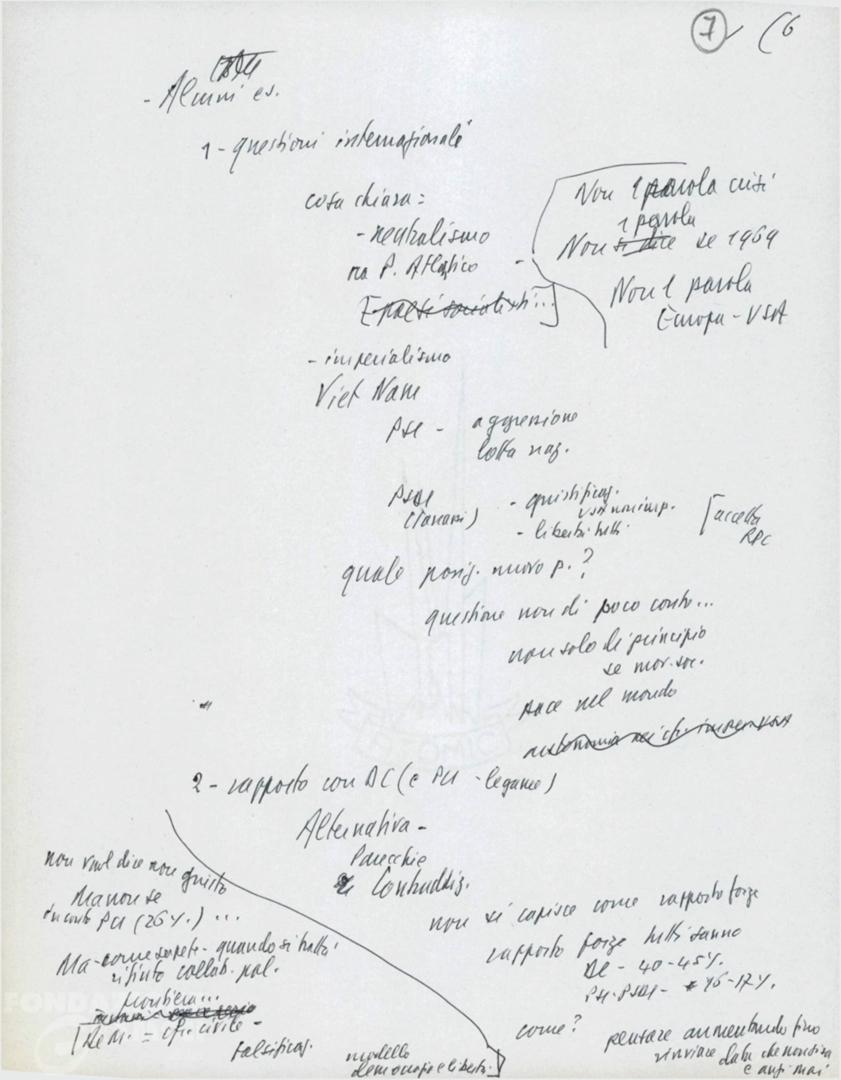 7 (6
- Alcuni es.
1 - questioni internazionale
cosa chiara:
- neutralismo
ma P. Atlantico -
[paesi socialisti...]
Non 1 parola crisi
1 parola
Non si dice se 1969
Non 1 parola
Europa - USA
- imperialismo
Viet Nam
PSI - aggressione
lotta naz.
PSDI - giustificaz.
(Tanassi) USA non imp.
- libertà tutti
[accetta
RPC
quale posiz. nuovo p.?
questione non di poco conto...
non solo di principio
se mov. soc.
pace nel mondo
2 - rapporto con DC (e PCI - legame)
Alternativa -
Parecchie
Contraddiz.
non si capisce come rapporto forze
rapporto forze tutti sanno
DC - 40-45%.
PSI-PSDI - 16-17%.
come?
pensare aumentando fino
rinviare data che non dire
e anzi mai
non vuol dire non giusto
Ma non se
in conto PCI (26%.) ...
Ma - come sapete - quando si tratta
rifiuto collab. pol.
frontiera...
[De M. = civile -
falsificaz.
modello
democrazia e libertà.]
FONDAZ